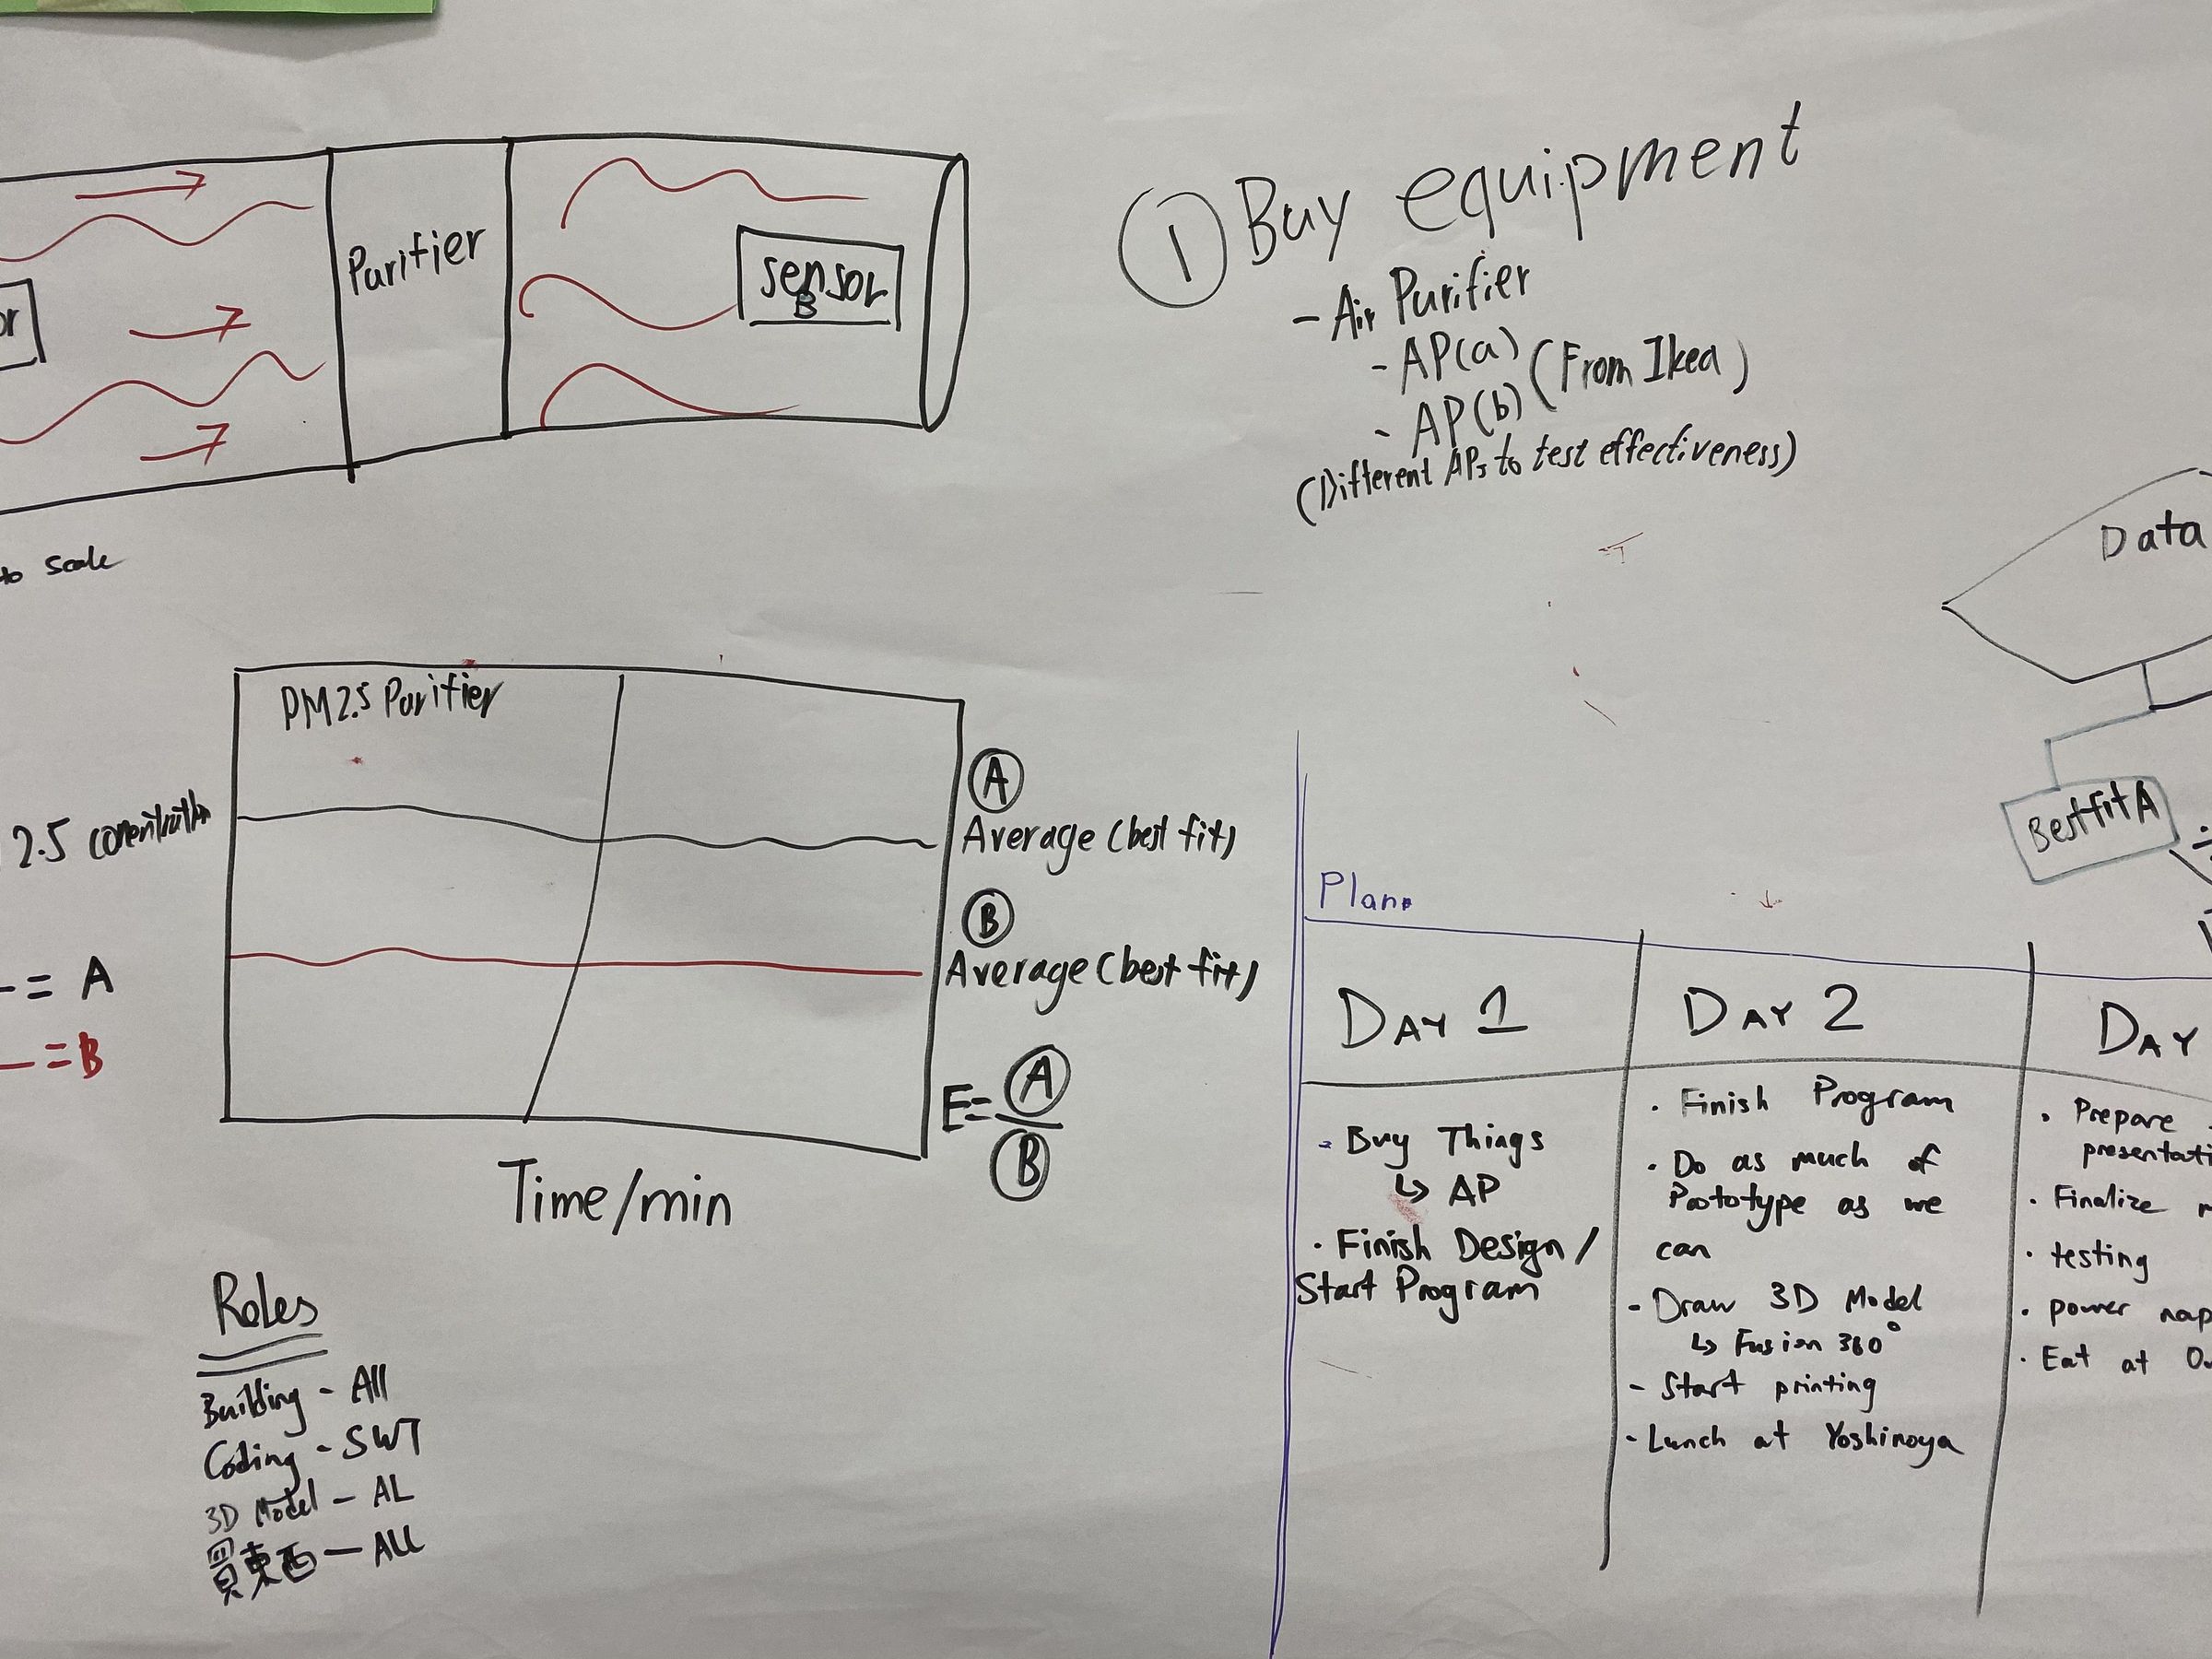 Purifier
sensor
B
or
to scale
① Buy equipment
- Air Purifier
- AP(a)
- AP(b) (From Ikea)
(Different APs to test effectiveness)
Data
Best fit A
÷
PM2.5 Purifier
2.5
A
Average (best fit)
B
Average (best fit)
= A
= B
E = A
B
Time/min
Roles
Building - All
Coding - SWT
3D Model - AL
買東西 - All
Plan
DAY 1
- Buy Things
↳ AP
· Finish Design /
Start Program
DAY 2
· Finish Program
· Do as much of
Prototype as we
can
- Draw 3D Model
↳ Fusion 360°
- Start printing
- Lunch at Yoshinoya
DAY
· Prepare
presentati
· Finalize
· testing
· power nap
· Eat at